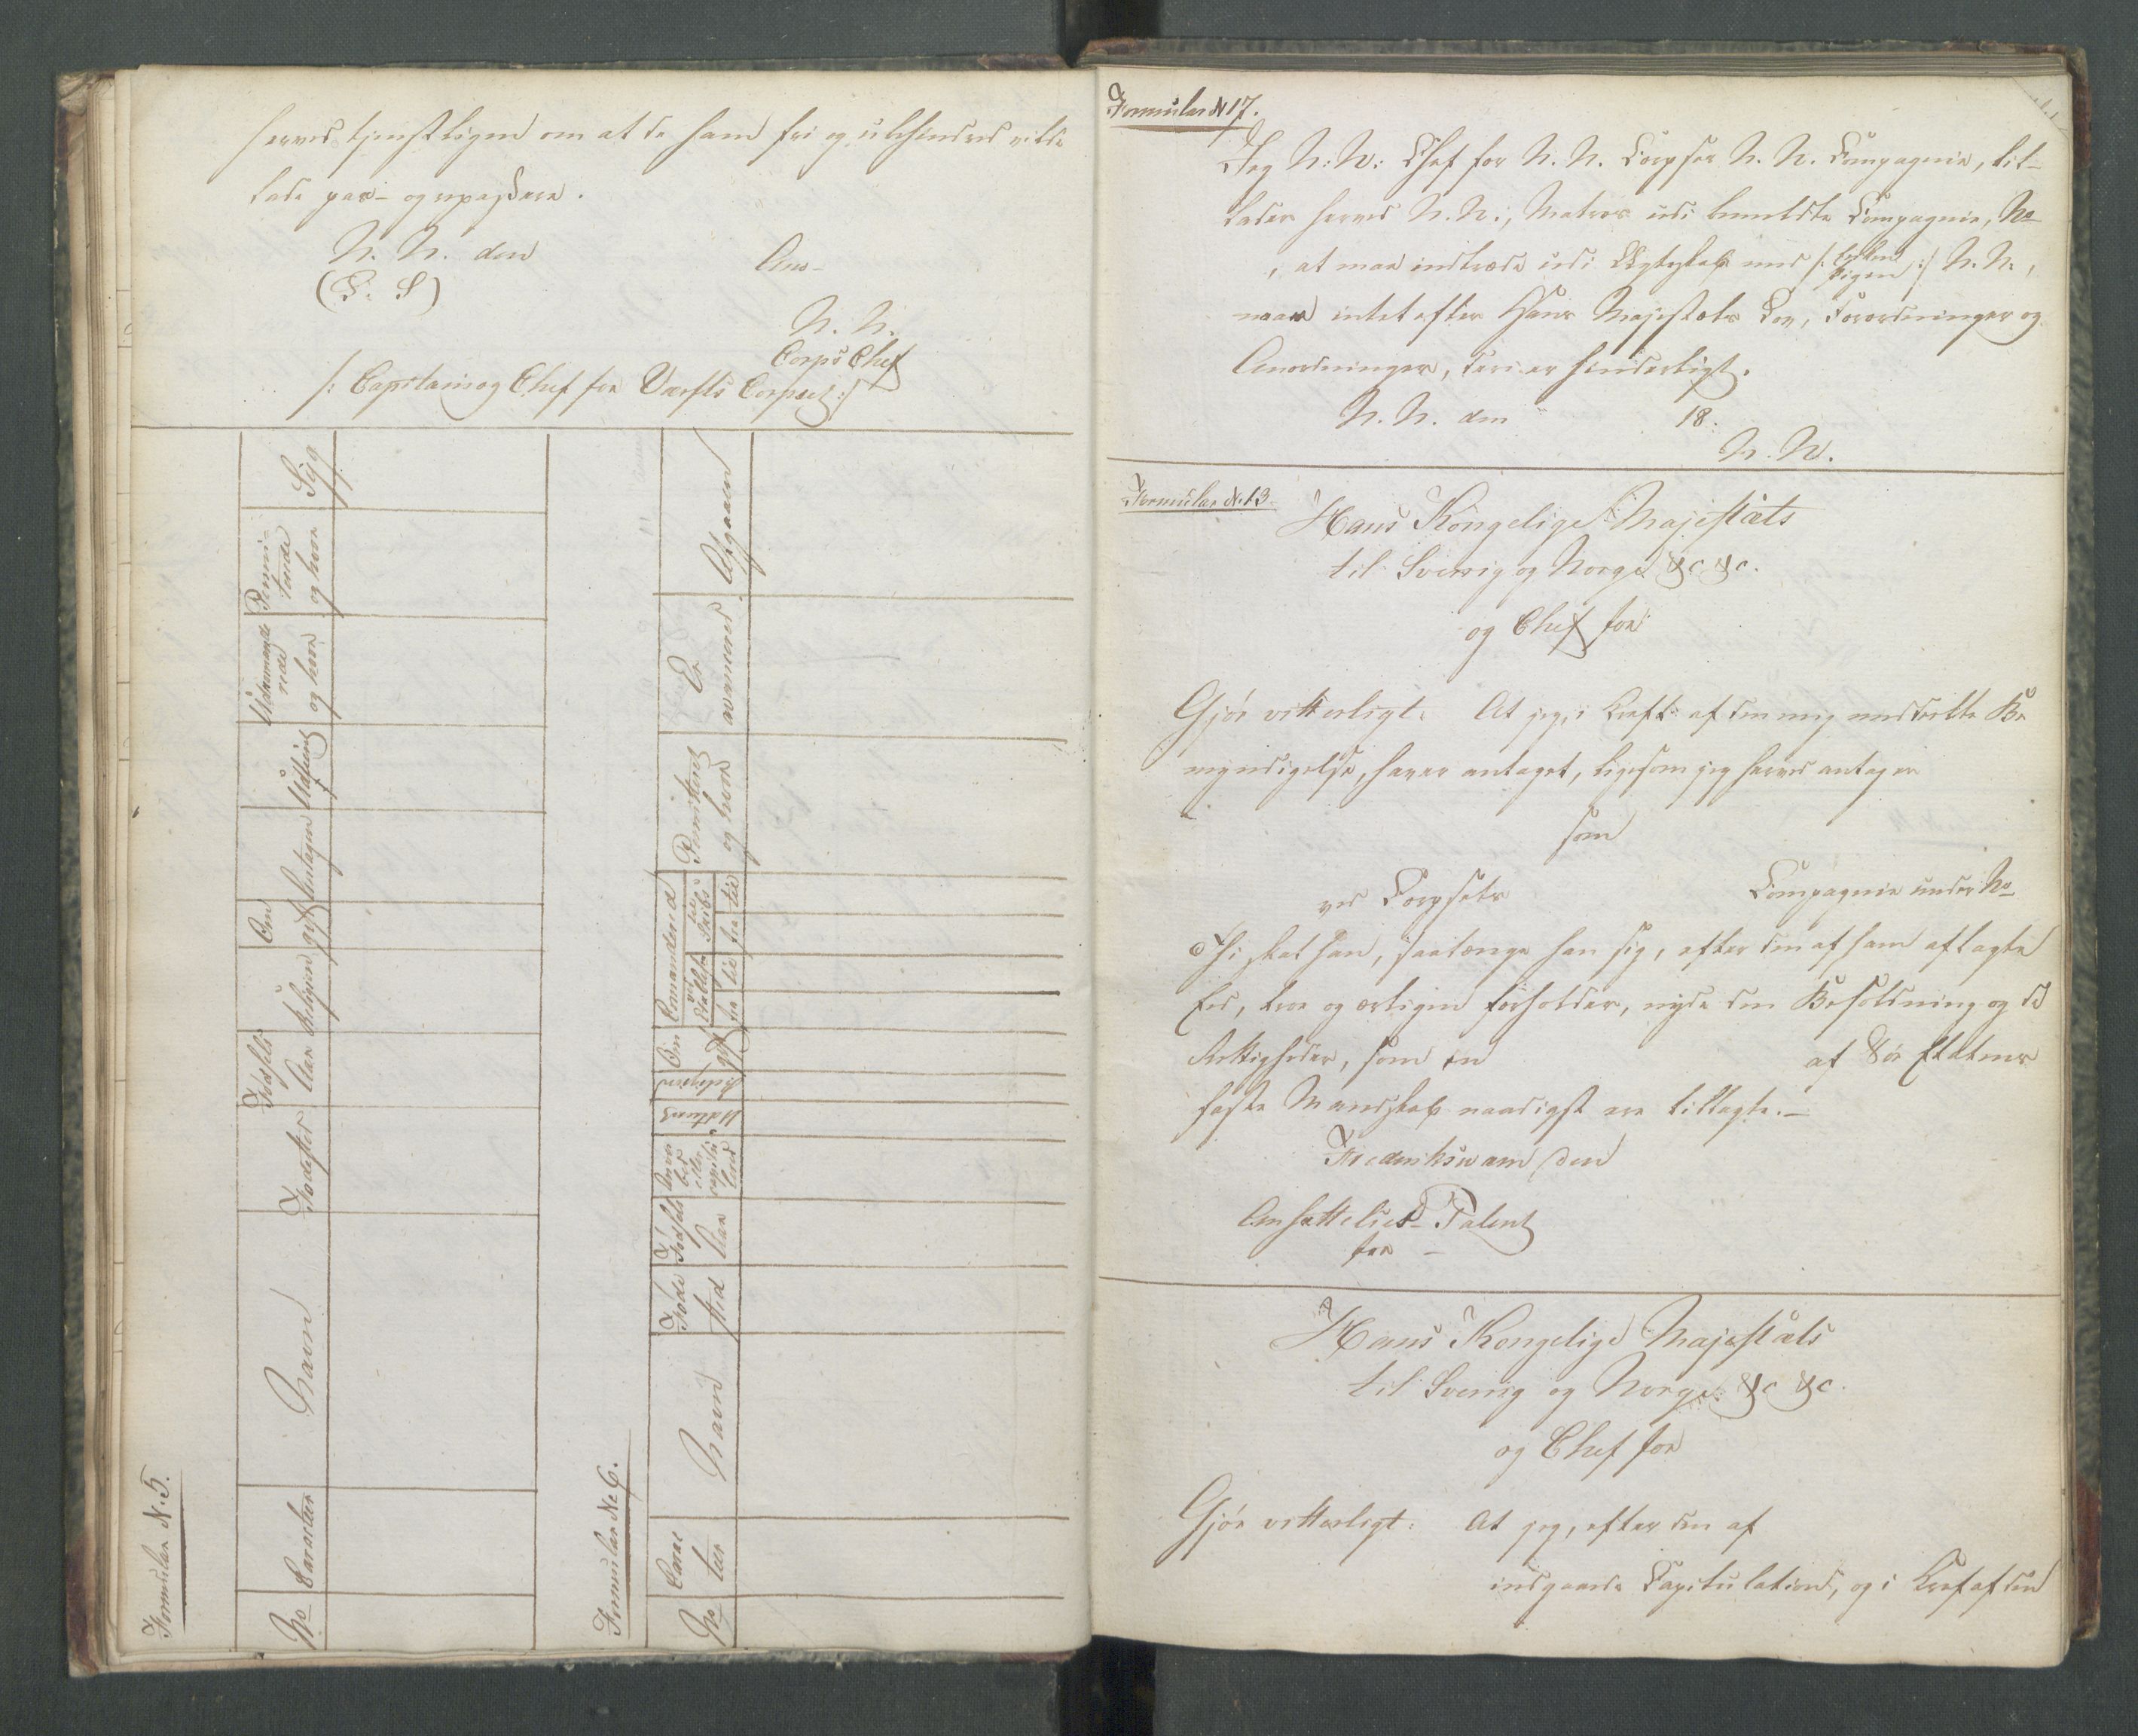 herved tjenstligen om at de ham fri og ubehindred vilde
lade pas- og repassere.
N. N. den
(L. S)
Ano-
N. N.
Corps Chef
/: Captain og Chef for Værfts Corpset :/
Formular N. 5.
No
Caracteer
Navn
Fødested
Fødsels
Aar
Religion
Om
gift
Antagen
Udtient
Udcommande
rede
og hvor
Permi-
terede
og hvor
Syg
Formular No 6.
No
Carac
teer
Navn
Føde
sted
Fødsels
Aar
Anta
get
eller
capitu
leret
Udtient
Religion
Om
gift
Comanderede
fra
til
fra
til
Permiteret
og hvor
Er
avanceret
Afgaaen
Formular N 17.
Jeg N: N: Chef for N. N. Corpses N. N. Compagnie, til-
lader herved N. N:, Matros udi bemeldte Compagnie, No
, at maa indtræde udi Ægteskab med /: Enken
Pigen :/ N. N.,
naar intet efter Hans Majestæts Lov, Forordninger og
Anordninger, deri er hinderligt.
N. N. den 18.
N. N.
Formular N. 13
Hans Kongelige Majestæts
til Sverrig og Norge &c &c.
og Chef for
Gjør vitterligt: At jeg, i Kraft af den mig meddeelte Be
myndigelse, haver antaget, ligesom jeg herved antager
som
ved Corpsets Compagnie under No
Thi skal han, saalænge han sig, efter den af ham aflagte
Eed, troe og ærligen forholder, nyde den Besoldning og de
Rettigheder, som en af Søe Etatens
faste Mandskab naadigst ere tillagte.-
Frederiksværn den
Ansættelses- Patent
for -
Hans Kongelige Majestæts
til Sverrig og Norge &c &c.
og Chef for
Gjør vitterligt: At jeg, efter den af
indgaaede Capitulation, og i Kraft af den